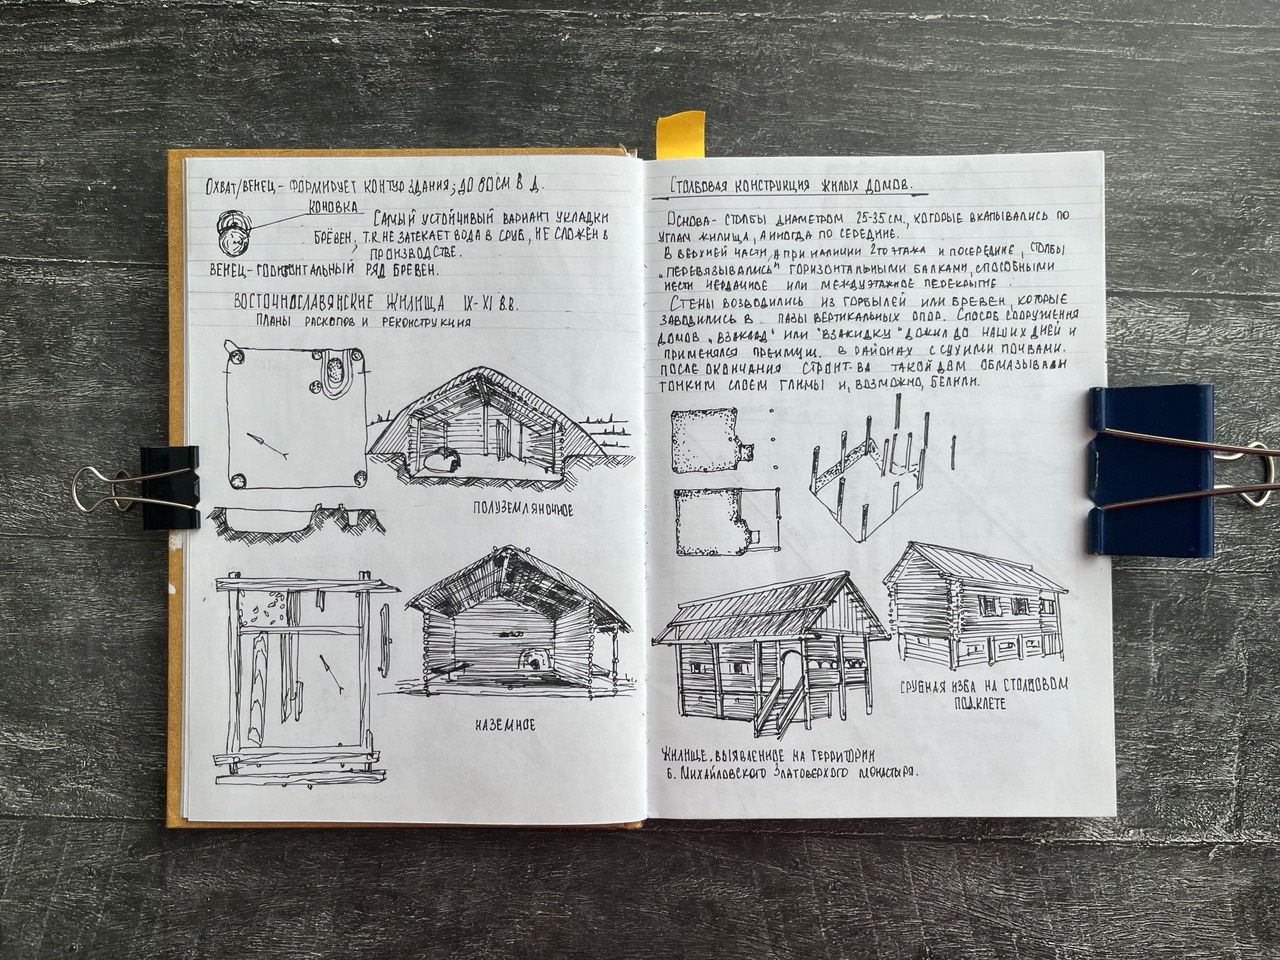 Охват/венец - формирует контур здания; до 80см в д.
коновка
Самый устойчивый вариант укладки
брёвен, т.к. не затекает вода в сруб, не сложен в
производстве.
Венец - горизонтальный ряд бревен.
Восточнославянские жилища IX-XI в.в.
планы раскопов и реконструкция
полуземляночное
наземное
Столбовая конструкция жилых домов.
Основа - столбы диаметром 25-35 см., которые вкапывались по
углам жилища, а иногда по середине.
В верхней части, а при наличии 2го этажа и посередине, столбы
"перевязывались" горизонтальными балками, способными
нести чердачное или междуэтажное перекрытие.
Стены возводились из горбылей или бревен, которые
заводились в пазы вертикальных опор. Способ сооружения
домов "взаклад" или "взакидку" дожил до наших дней и
применялся преимущ. в районах с сухими почвами.
После окончания строит-ва такой дом обмазывали
тонким слоем глины и, возможно, белили.
срубная изба на столбовом
подклете
Жилище, выявленное на территории
б. Михайловского Златоверхого монастыря.